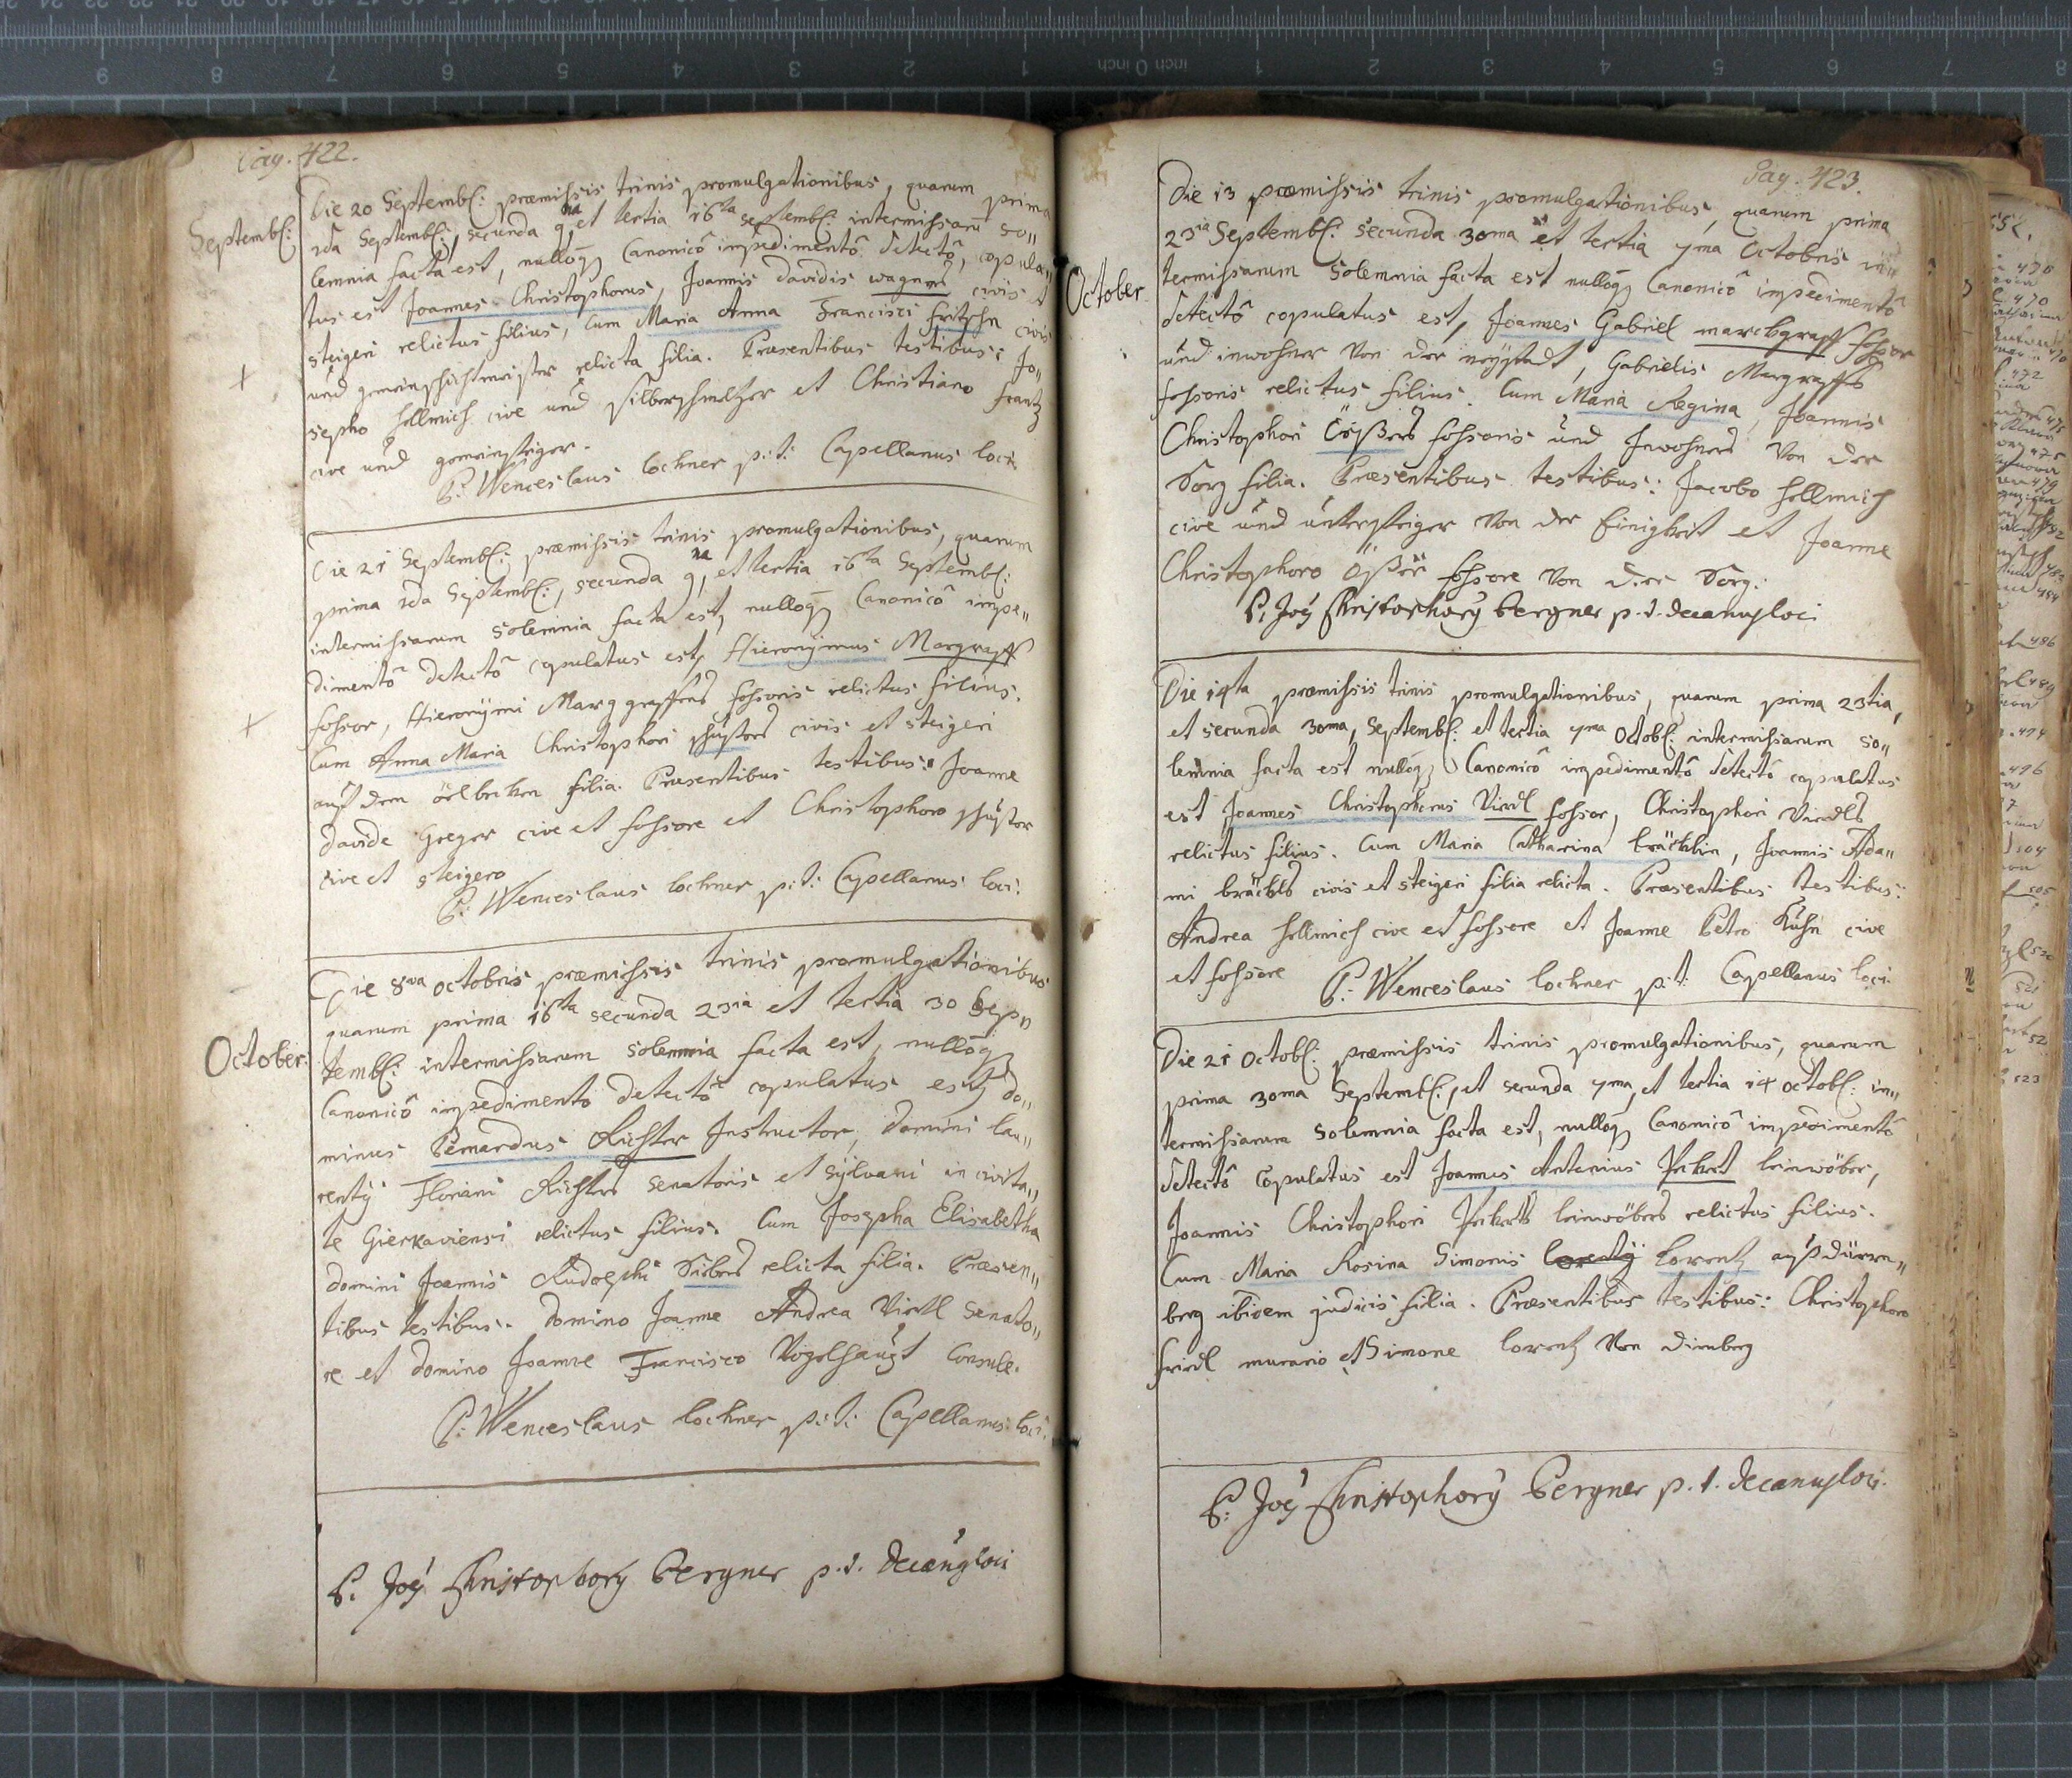 Pag. 422.
Septembr:
Die 20 Septembr: præmissis trinis promulgationibus, quarum prima
2da Septembr:, secunda 9na, et tertia 16ta Septembr: intermissarũ so„
lemnia facta est, nulloq3 Canonicô impedimentô detectô, copula„
tus est Joannes Christophorus, Joannis Davidis wagners civis et
steigeri relictus filius, Cum Maria Anna Francisci fritschn civis
und gemeinschichtmeister relicta filia. Præsentibus testibus: Jo„
sepho hellmich cive und silberschmeltzer et Christiano frantz
cive und gemeinsteiger.
P: Wenceslaus lochner p:t: Capellanus loci.
Die 21 Septembr: præmissis trinis promulgationibus, quarum
prima 2da Septembr:, secunda 9na, et tertia 16ta Septembr:
intermissarum solemnia facta est, nulloq3 Canonicô impe„
dimentô detectô copulatus est, Hieronÿmus Margraff
fossor, Hieronÿmi Marggraffens fossoris relictus filius.
Cum Anna Maria Christophori schusters civis et steigeri
filia. Præsentibus testibus: Joanne
Davide Greger cive et fossore et Christophoro schuster
cive et steigero
P: Wenceslaus lochner p:t: Capellanus loci.
October.
Die 8va octobris præmissis trinis promulgationibus
quarum prima 16ta secunda 23ia et tertia 30 Sep„
tembr: intermissarum solemnia facta est, nulloq3
Canonicô impedimento detectô copulatus est, do„
minus Bernardus Richter Instructor, Domini lau„
rentÿ Floriani Richters senatoris et sÿlvani in civita„
te Gierkaviensi relictus filius. Cum Josepha Elisabetha
domini Joannis Rudolphi Siebers relicta filia. Præsen„
tibus testibus. Domino Joanne Andrea Viertl senato„
re et Domino Joanne Francisco Vogelhaupt Consule.
P: Wenceslaus lochner p:t: Capellanus loci.
P. Joẽs Christophorg Bergner p.t. decanus loci
Pag. 423.
October
Die 13 præmissis trinis promulgationibus, quarum prima
23ia Septembr: secunda 30ma et tertia 7ma Octobris in„
termissarum solemnia facta est nulloq3 Canonicô impedimentô
detectô copulatus est, Joannes Gabriel marckgraff fossor
und inwohner Von der neÿstadt, Gabrielis Margraffs
fossoris relictus filius. Cum Maria Regina, Joannis
Christophori Ößers fossoris und Inwohners Von der
Sorg filia. Præsentibus testibus: Jacobo hellmich
cive und untersteiger Von der Einigkeit et Joanne
Christophoro Ößer fossore Von der Sorg.
P. Joẽs Christophorg Bergner p.t. decanus loci
Die 14ta præmissis trinis promulgationibus, quarum prima 23tia,
et secunda 30ma, Septembr: et tertia 7ma Octobr: intermissarum so„
lemnia facta est nulloq3 Canonicô impedimentô detectô copulatus
est Joannes Christophorus Viertl fossor, Christophori Viertls
relictus filius. Cum Maria Catharina bräcklin, Joannis Ada„
mi bräckls civis et steigeri filia relicta. Præsentibus testibus:
Andrea hellmich cive et fossore et Joanne Petro Kuhn cive
et fossore
P: Wenceslaus lochner p:t: Capellanus loci.
Die 21 Octobr: præmissis trinis promulgationibus, quarum
prima 30ma Septembr:, et secunda 7ma, et tertia 14 octobr: in„
termissarum solemnia facta est, nulloq3 Canonicô impedimentô
detectô Copulatus est Joannes Antonius leinwöber,
Joannis Christophori leinwöbers relictus filius.
Cum Maria Rosina Simonis lorentz auß dürrn„
berg ibidem judicis filia. Præsentibus testibus: Christophoro
friedl murario et Simone lorentz Von dirnberg
P: Joẽs Christophorg Bergner p.t. decanus loci.